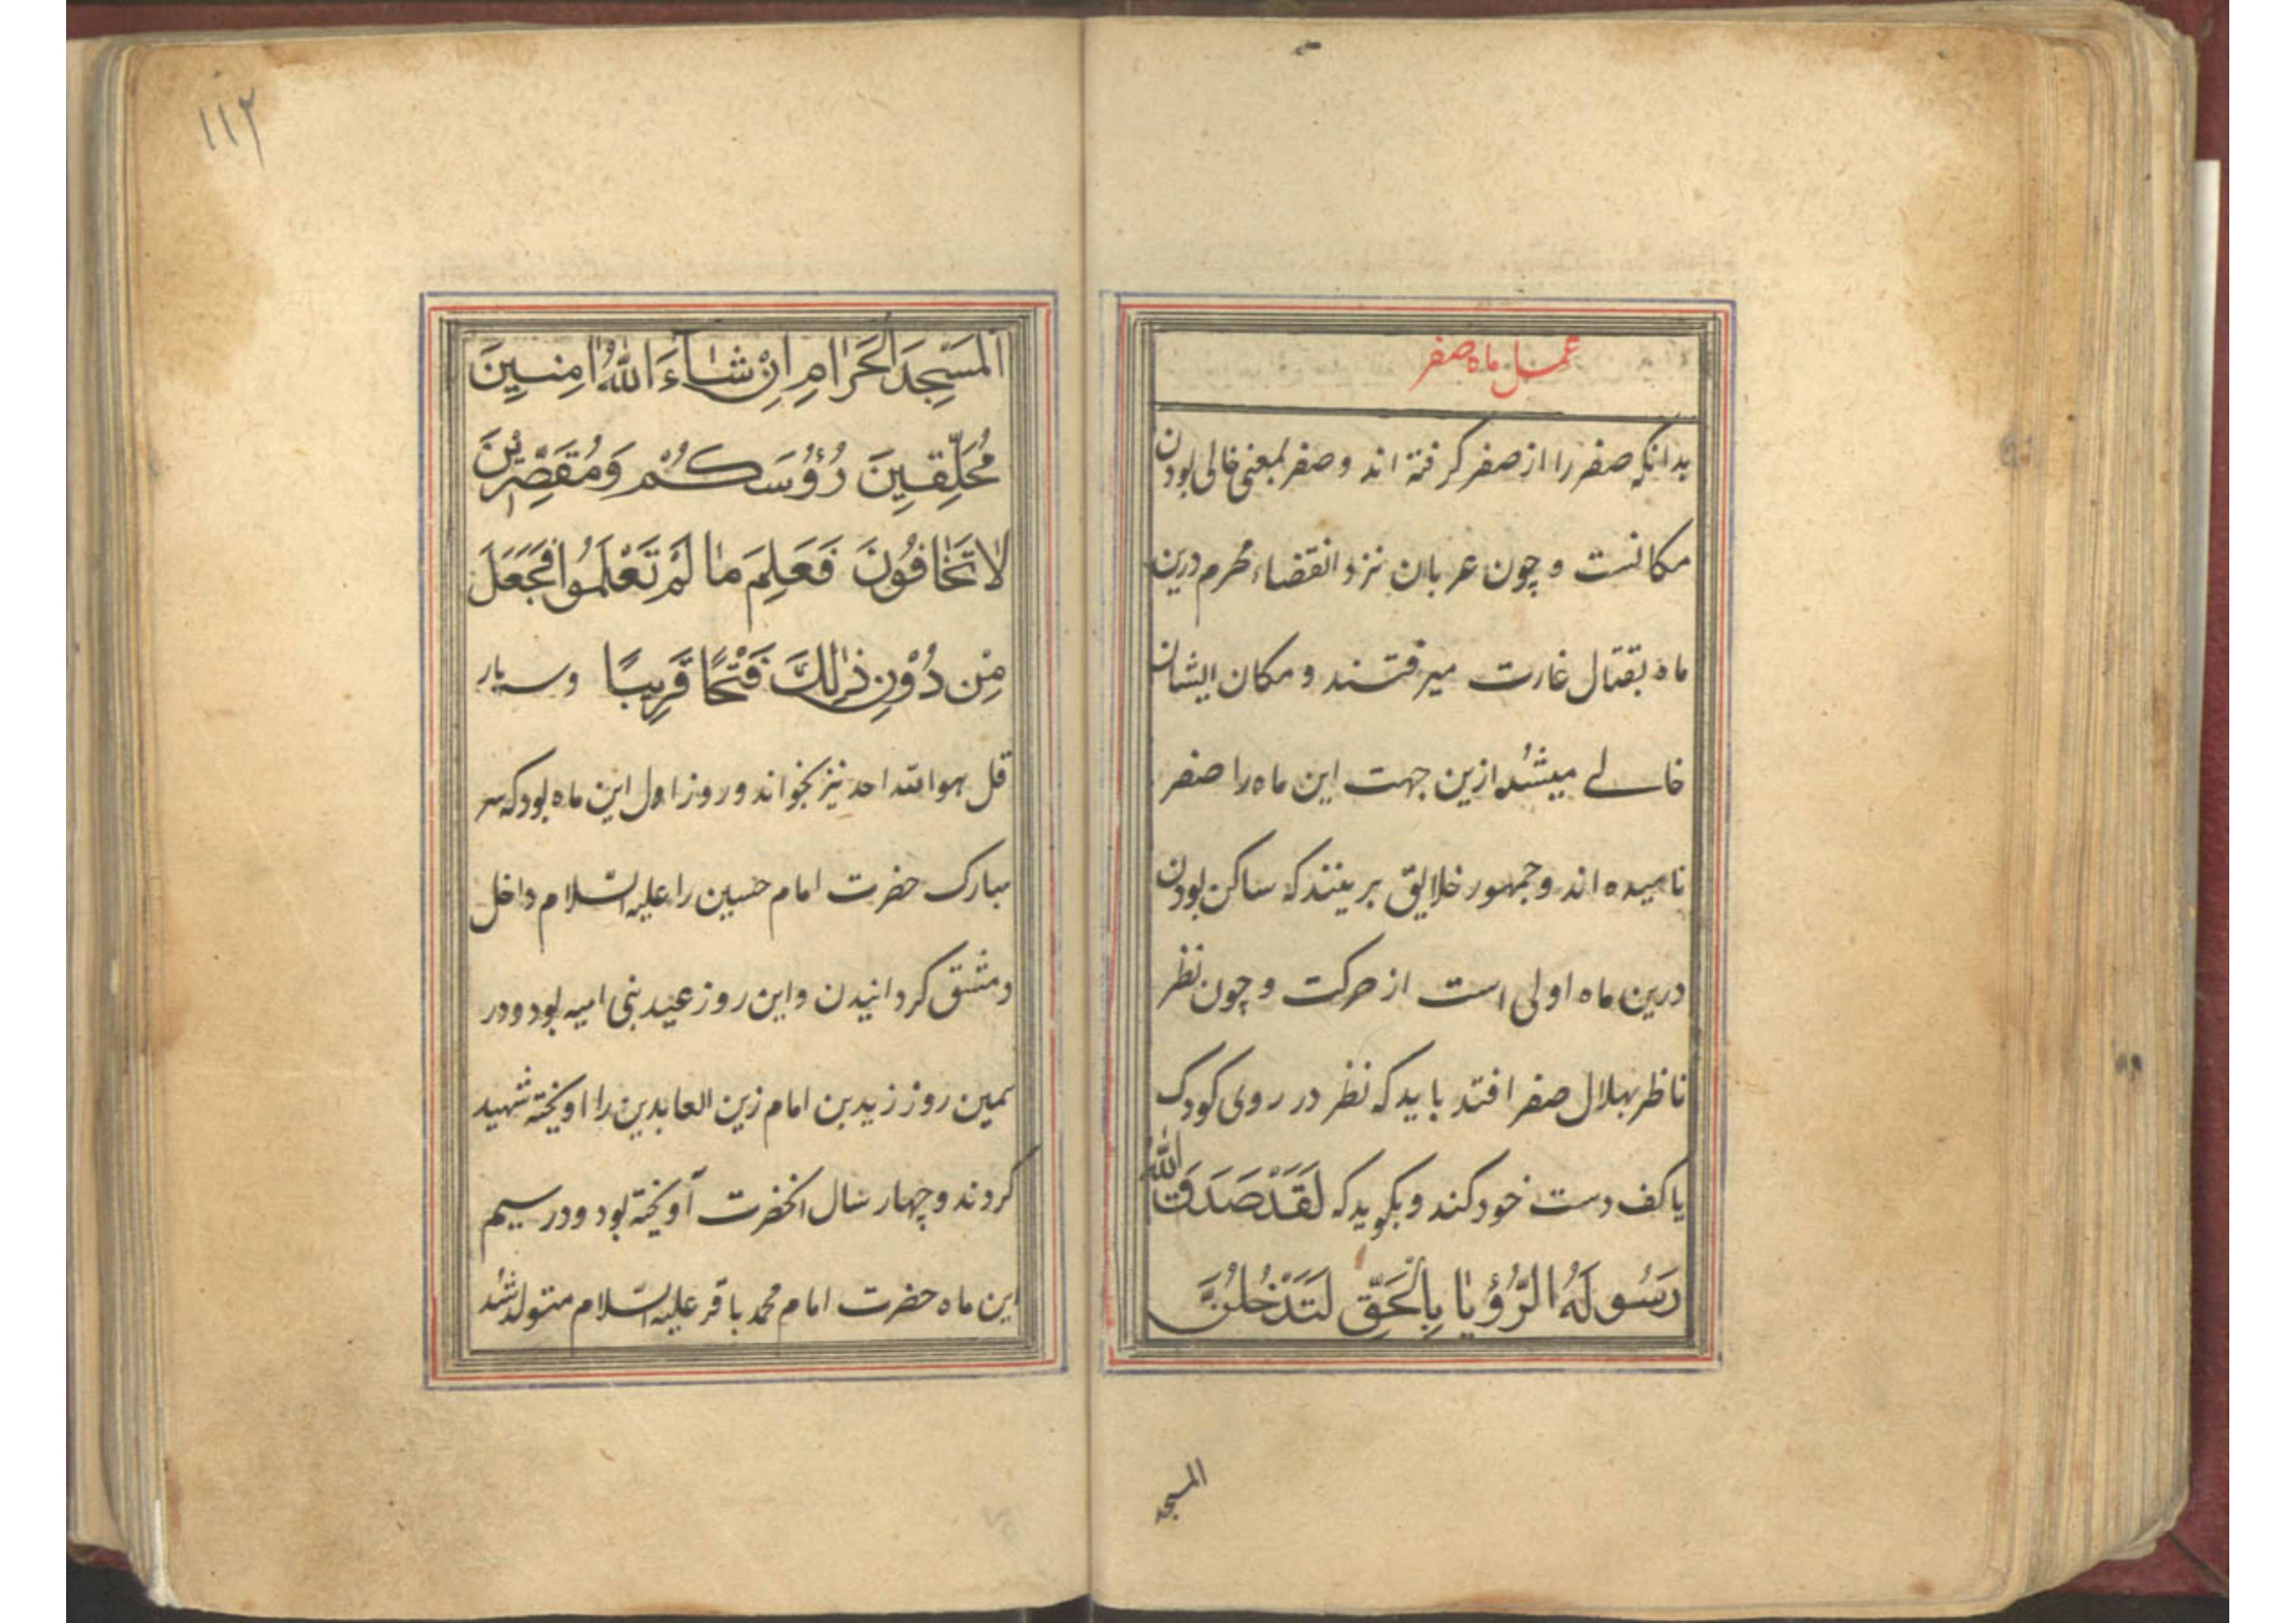 عمل ماه صفر
بدانکه صفر را از صفر گرفته اند و صفر بمعنی خالی بودن
مکانست و چون عربان نزد انقضاء محرم درین
ماه بقتال غارت میرفتند و مکان ایشان
خالے میشد ازین جهت این ماه را صفر
نامیده اند و جمهور خلایق برینند که ساکن بودن
درین ماه اولی است از حرکت و چون نظر
ناظر بهلال صفر افتد باید که نظر در روی کودک
یا کف دست خود کند و بگوید که لَقَدْ صَدَقَ اللّٰهُ
رَسُولَهُ الرُّؤْيَا بِالْحَقِّ لَتَدْخُلُنَّ
المسجد
١١٢
الْمَسْجِدَ الْحَرَامِ اِنْ شَاءَ اللّٰهُ اٰمِنِينَ
مُحَلِّقِينَ رُؤُسَكُمْ وَمُقَصِّرِينَ
لَا تَخَافُونَ فَعَلِمَ مَا لَمْ تَعْلَمُوا فَجَعَلَ
مِنْ دُوْنِ ذٰلِكَ فَتْحًا قَرِيبًا وسه بار
قل هو الله احد نیز بخواند و روز اول این ماه بود که سر
مبارک حضرت امام حسین را علیه السّلام داخل
دمشق کردانیدن و این روز عید بنی امیه بود و در
همین روز زید بن امام زین العابدین را اویخته شهید
کردند و چهار سال آنحضرت آویخته بود و در سیم
این ماه حضرت امام محمد باقر علیه السّلام متولد شد